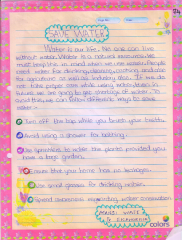 SAVE WATER
Water is our life. No one can live
without water. Water is a natural resource. We
must keep this in mind when we use water. People
need water for drinking, cleaning, cooking, and also
for agriculture as well as industrial use. If we do
not take proper care while using water, then in
future we are going to get shortage of water. To
avoid this, we can follow different ways to save
water -
Turn off the tap while you brush your teeth.
Avoid using a shower for bathing.
Use sprinklers to water the plants provided you
have a large garden.
Ensure that your home has no leakages.
Use small glasses for drinking water.
Spread awareness regarding water conservation
colors